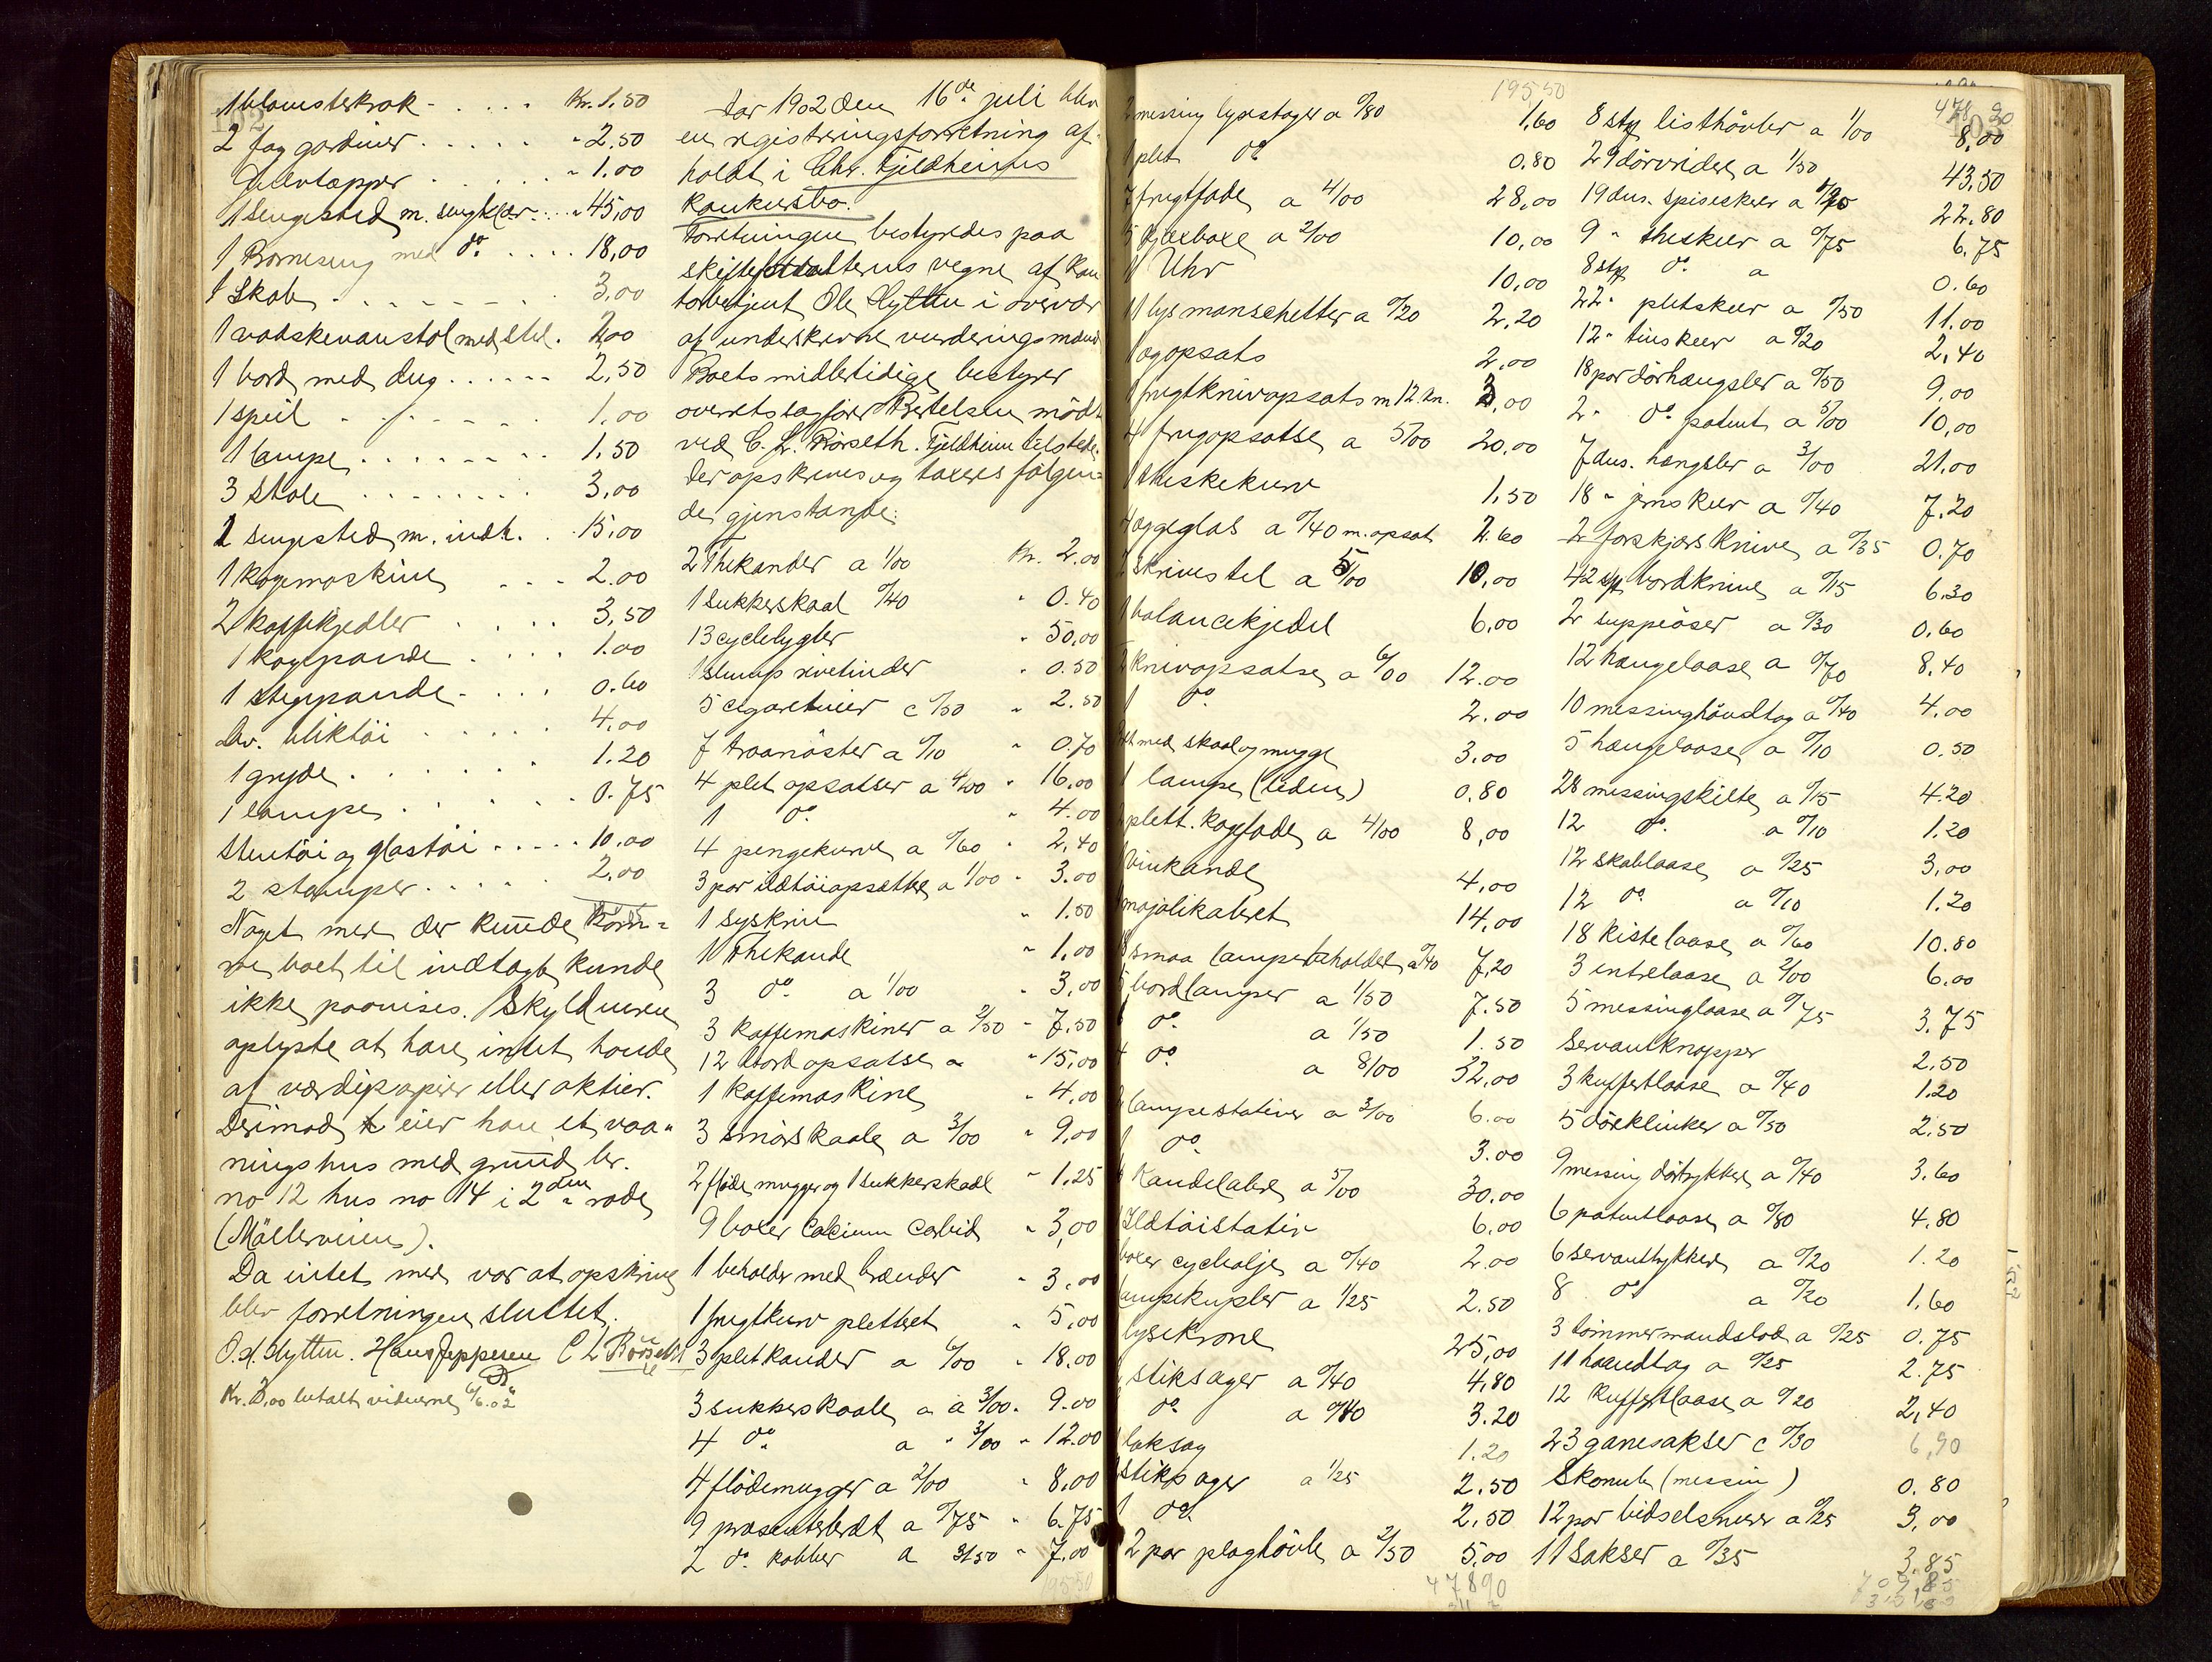 102
1 blomsterkrak - . . . . Kr. 1.50
2 fag gardiner . . . . . " 2.50
Gulvtæpper . . . . . " 1.00
1 Sengested m. sengklær . . . " 45,00
1 Barneseng med do. . . . . 18,00
1 Skab . . . . . . . 3,00
1 vadskevanstol med stel . 2,00
1 bord med dug . . . . . . 2,50
1 speil . . . . . . 1.00
1 lampe . . . . . . . . 1.50
3 stole . . . . . . . . 3,00
1 sengested m. indh. . 15,00
1 kogemaskine . . . 2.00
2 kaffekjedler . . . . . 3,50
1 kagepande . . . . 1.00
1 stegepande . . . . 0.60
Div. bliktöi . . . . . 4,00
1 gryde . . . . . . 1.20
1 lampe . . . . . 0.75
Stentöi og glastöi . . . . . 10.00
2 stamper . . . . . 2,00
Noget mer der kunde kom-
me boet til indtægt kunde
ikke paavises. Skyldneren
oplyste at han intet havde
af værdipapirer eller aktier.
Derimod eier han et vaa-
ningshus med grund br.
no 12 hus no 14 i 2den rode
(Möllerveien).
Da intet mer var at opskrive
blev forretningen sluttet.
O. H. Hyttin. Hans Jeppesen C L Rörseth
Kr. 2,00 betalt vidnerne 6/6.02
Aar 1902 den 16de juli blev
en registreringsforretning af-
holdt i Chr. Fjeldheims
konkursbo.
Forretningen bestyredes paa
skifteforvalterens vegne af kon
torbetjent Ole Hyttin i overvær
af underskrevne vurderingsmænd
Boets midlertidige bestyrer
overretssagfører Bertelsen mödte
ved C. L. Rörseth. Fjeldheim tilstede.
Der opskrives og taxeres fölgen-
de gjenstande:
2 Thekander a 1/00 Kr. 2.00
1 Sukkerskaal 0/40 " 0.40
13 cyclelygter " 50,00
1 slump rivetinder " 0.50
5 cigaretuier a 0/50 " 2.50
7 traanöster a 0/10 " 0.70
4 plet opsatser a 4/00 " 16,00
1 do " 4.00
4 pengekurve a 0/60 " 2,40
3 par ildtöiopsatser a 1/00 " 3.00
1 syskrin " 1.50
1 Thekande " 1,00
3 do. a 1/00 " 3,00
3 kaffemaskiner a 2/50 " 7,50
12 bord opsatse a " 15,00
1 kaffemaskine " 4,00
3 smörskaale a 3/00 " 9,00
2 flöde mugger og 1 sukkerskaal " 1.25
9 boxer Calcium Carbid " 3,00
1 beholder med brænder " 3,00
1 frugtkurv plettert " 5,00
3 pletkander a 6/00 " 18.00
3 sukkerskaale a 3/00 " 9.00
4 do. a " 3/00 " 12.00
4 flödemugger a 2/00 " 8,00
9 præsenterbræt a 0/75 " 6.75
2 do. kobber a 3/50 " 7,00
195.50
195 50
2 messing lysestager a 0/80 1,60
1 plet do 0.80
7 frugtfade a 4/00 28,00
5 Kjæxboxe a 2/00 10,00
1 Uhr 10,00
11 lysmanschetter a 0/20 2,20
1 ægopsats 2,00
1 frugtknivopsats m 12 kn. 3,00
4 frugopsatse a 5/00 20,00
1 theskekurv 1.50
4 æggeglas a 0/40 m. opsat 2.60
2 skrivestel a 5/00 10,00
1 balancekjedel 6,00
2 knivopsatse a 6/00 12.00
1 do 2.00
med skaal og mugge 3.00
1 lampe (liden) 0.80
2 plett. kagefade a 4/00 8,00
1 vinkande 4,00
1 majolikabret 14,00
18 smaa lampebeholder a 0/40 7,20
5 bordlamper a 1/50 7.50
1 do. a 1/50 1.50
4 do. a 8/00 32,00
2 lampestativer a 3/00 6.00
1 do. 3.00
6 Kandelabre a 5/00 30.00
1 Ildtöistativ 6.00
boxer cycleolje a 0/40 2.00
lampekupler a 1/25 2.50
lysekrone 25,00
stiksager a 0/40 4,80
do. a 0/40 3.20
1 löksag 1.20
2 stiksager a 1/25 2.50
1 do. 2,50
2 par plaghövle a 2/50 5,00
478 90
478 90
103
8 stk listhövler a 1/00 8,00
29 dörvridere a 1/50 43,50
19 dus. spiseskeer a 1/20 22.80
9 " theskeer a 0/75 6.75
8 stk do. a 0.60
22 " pletskeer a 0/50 11.00
12 " tinskeer a 0/20 2,40
18 par dörhængsler a 0/50 9,00
2 " do. patent a 5/00 10,00
7 dus. hængsler a 3/00 21,00
18 " jernskeer a 0/40 7.20
2 forskjærsknive a 0/35 0.70
42 stk bordknive a 0/15 6.30
2 suppeöser a 0/30 0.60
12 hængelaase a 0/70 8,40
10 messinghåndtag a 0/40 4.00
5 hængelaase a 0/10 0.50
28 messingskilte a 0/15 4.20
12 do. a 0/10 1.20
12 skablaase a 0/25 3,00
12 do. a 0/10 1.20
18 kistelaase a 0/60 10.80
3 entrelaase a 2/00 6.00
5 messinglaase a 0/75 3.75
Servantknapper 2.50
3 kuffertlaase a 0/40 1.20
5 dörklinker a 0/50 2.50
9 messing dörtrykkere a 0/40 3.60
6 patentlaase a 0/80 4.80
6 servanttrykkere a 0/20 1.20
8 do a 0/20 1.60
3 tömmermandslod a 0/25 0.75
11 haandtag a 0/25 2.75
12 kuffertlaase a 0/20 2,40
23 ganesakser a 0/30 6,90
Skonub (messing) 0.80
12 par bidselsnerer a 0/25 3,00
11 Sakser a 0/35 3.85